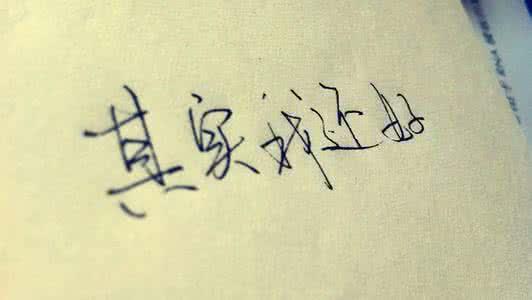 其实我还好